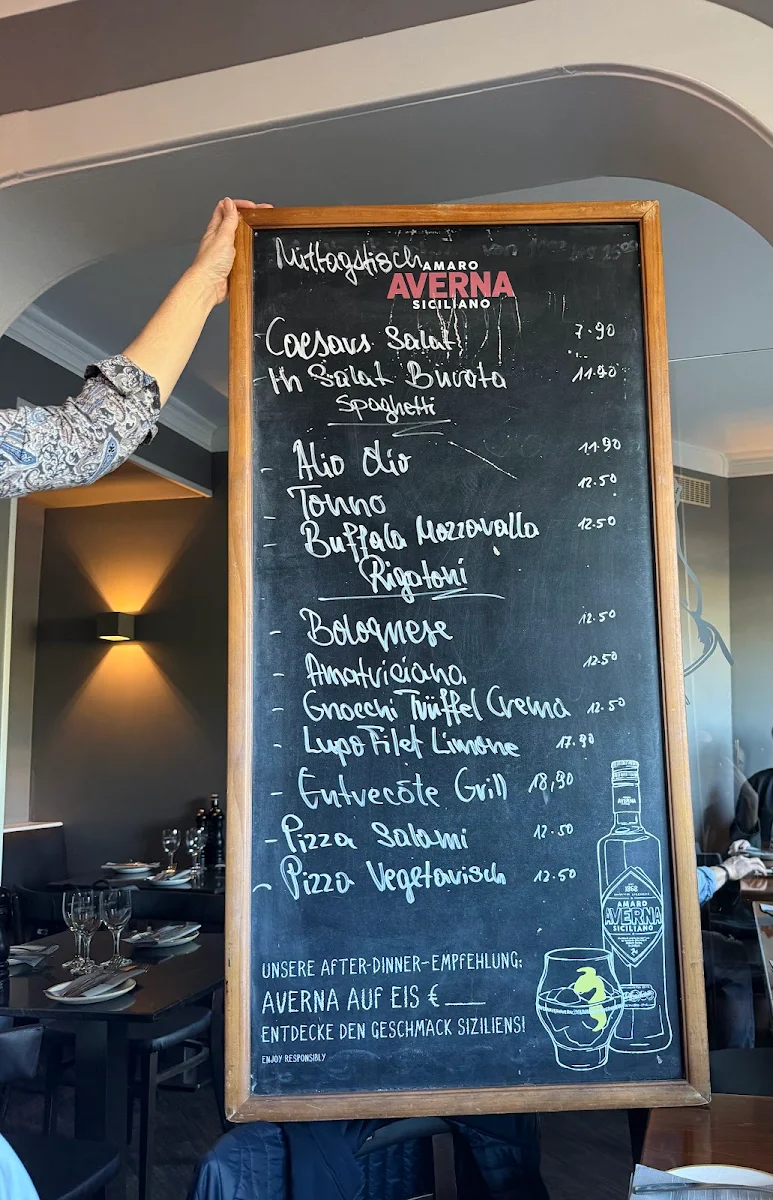 Mittagstisch
AMARO
AVERNA
SICILIANO
Caesars Salat 7.90
- Salat Burata 11.90
Spaghetti
- Alio Olio 11.90
- Tonno 12.50
- Buffala Mozzaralla 12.50
Rigatoni
- Bolognese 12.50
- Amatriciana 12.50
- Gnocchi Trüffel Crema 12.50
- Lupo Filet Limone 17.90
- Entrecôte Grill 18,90
- Pizza Salami 12.50
- Pizza Vegetarisch 12.50
UNSERE AFTER-DINNER-EMPFEHLUNG:
AVERNA AUF EIS €
ENTDECKE DEN GESCHMACK SIZILIENS!
ENJOY RESPONSIBLY
AVERNA
1868
AMARO
AVERNA
SICILIANO